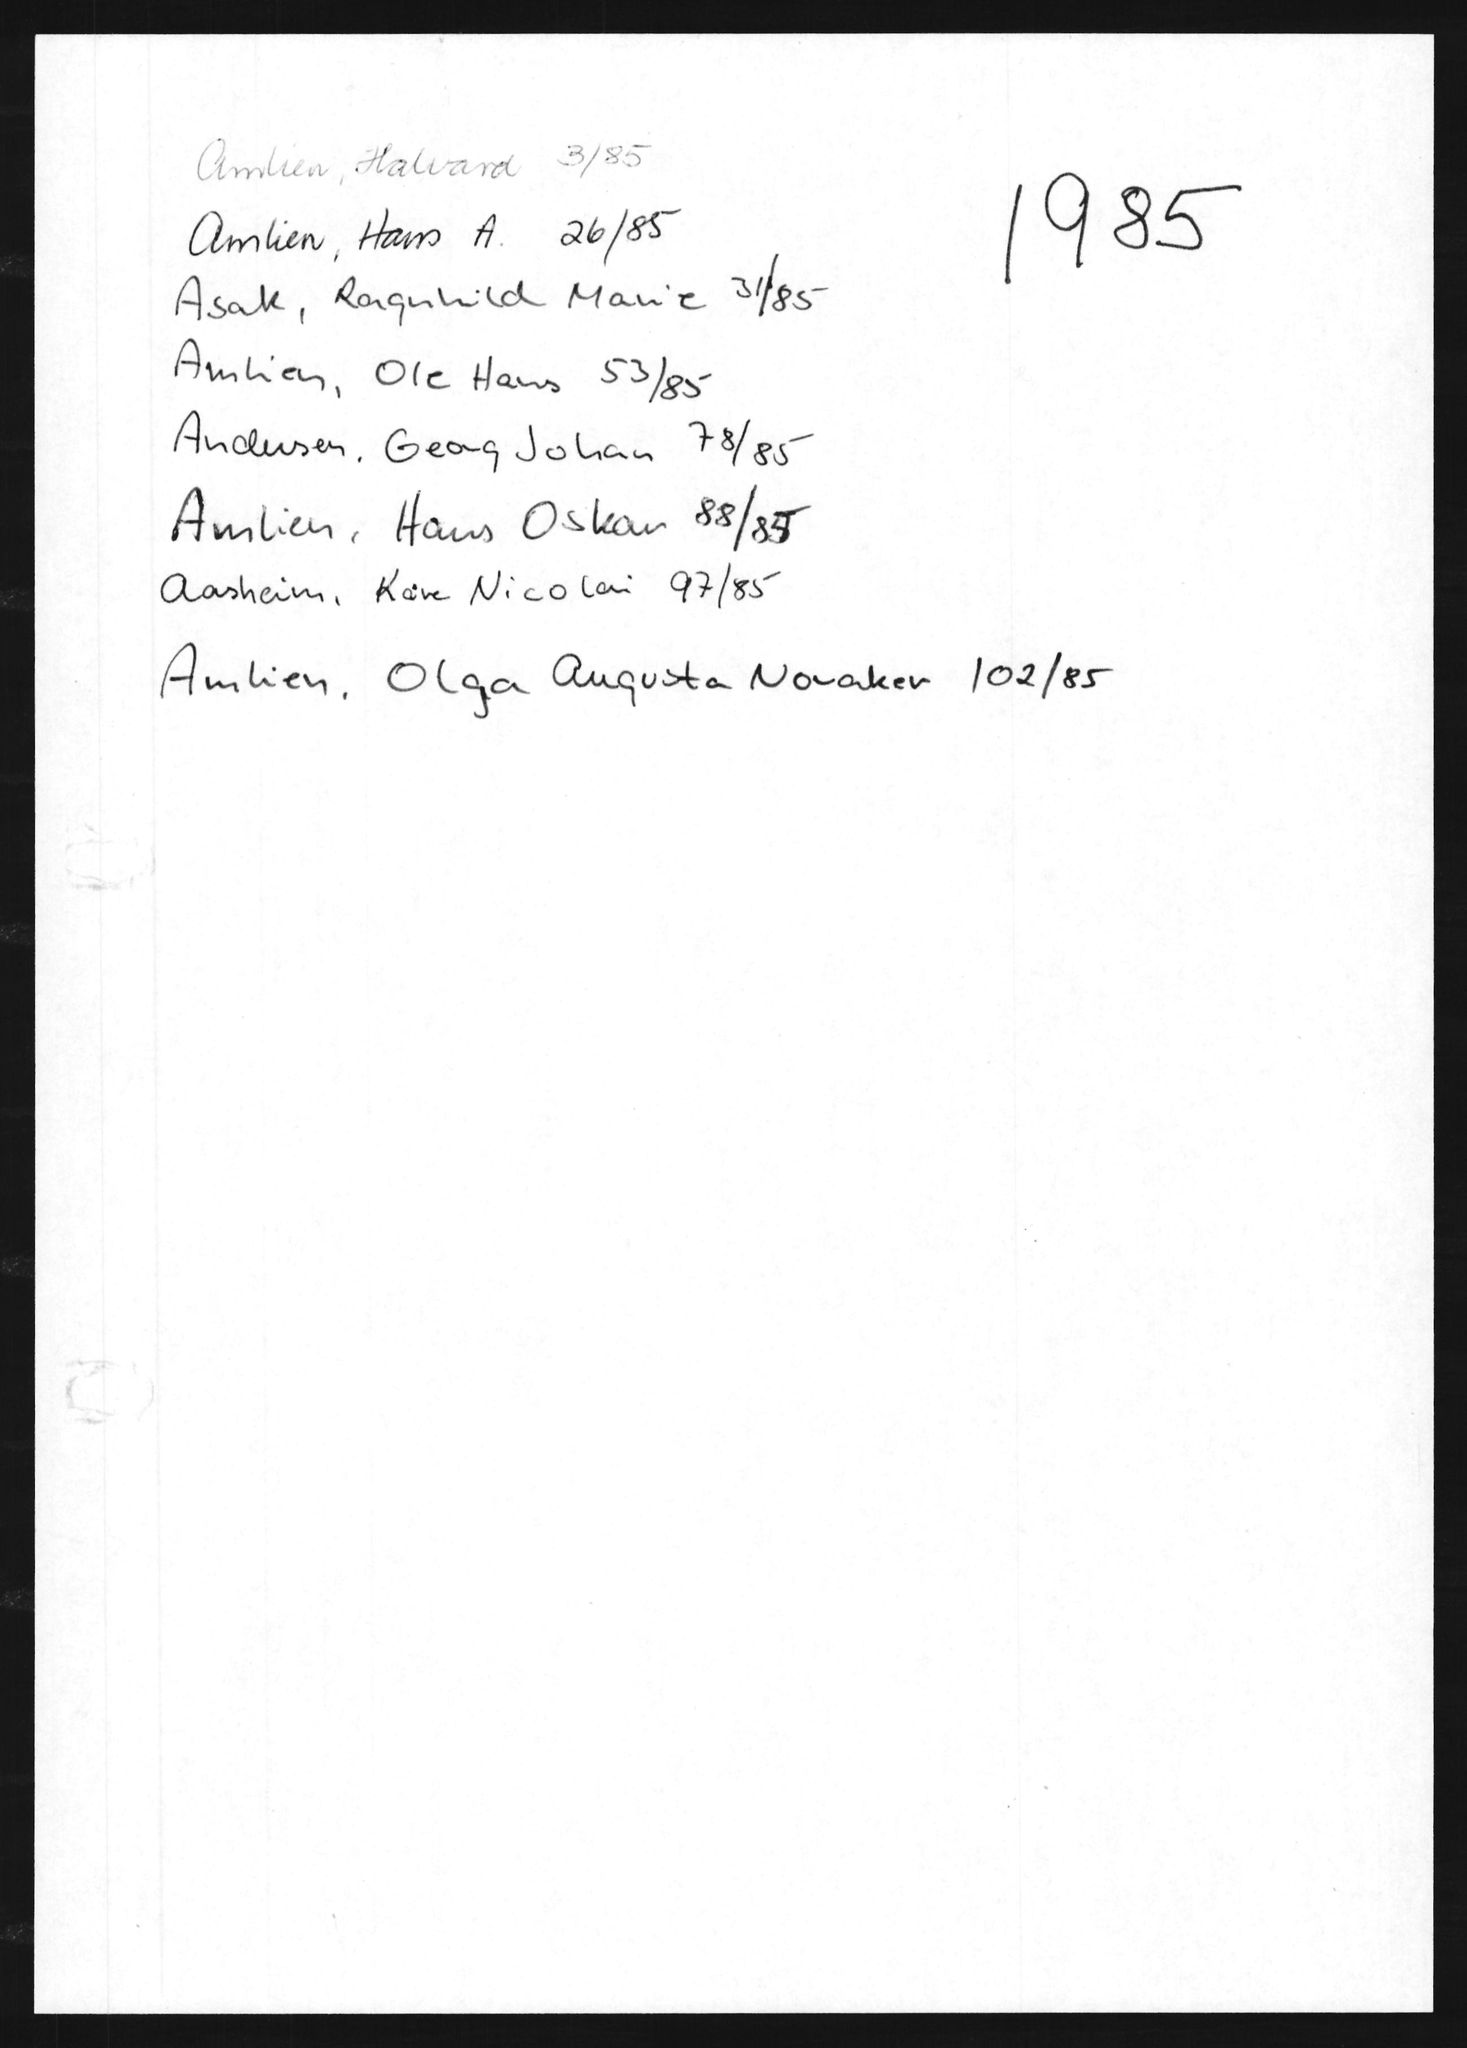 Amlien, Halvard 3/85
1985
Amlien, Hans A. 26/85
Asak, Ragnhild Marie 31/85
Amlien, Ole Hans 53/85
Andersen, Georg Johan 78/85
Amlien, Hans Oskar 88/85
Aasheim, Kåre Nicolai 97/85
Amlien, Olga Augusta Noraker 102/85